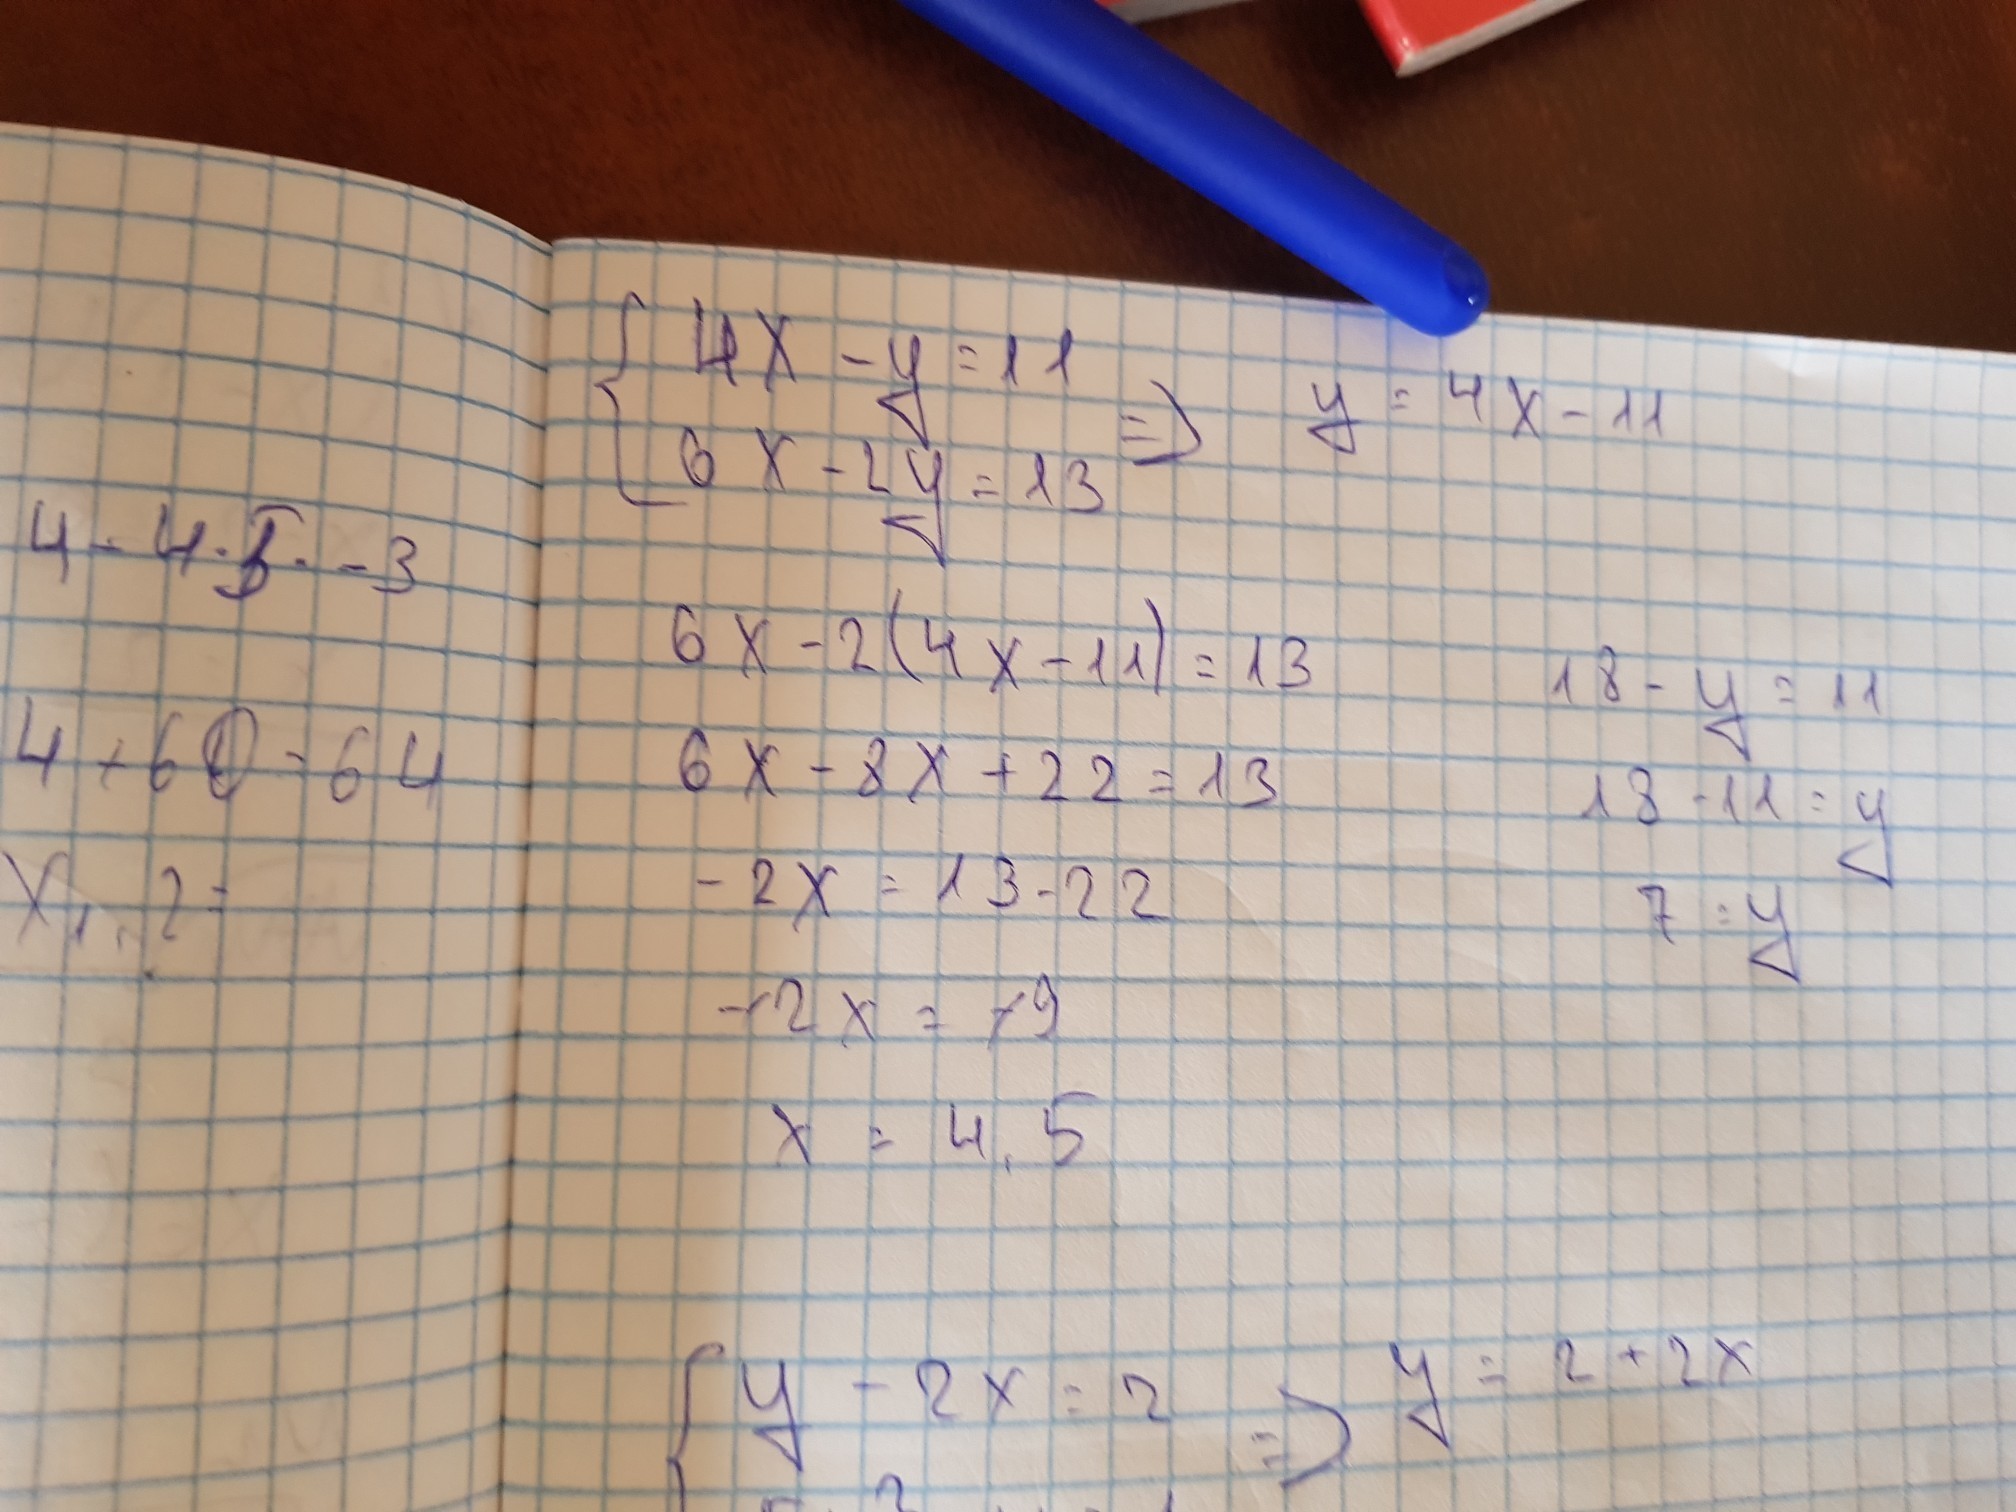 4 - 4·5· -3
4 + 60 = 64
x₁,₂ =
{ 4x - y = 11
6x - 2y = 13
=> y = 4x - 11
6x - 2(4x - 11) = 13
6x - 8x + 22 = 13
-2x = 13 - 22
-2x = -9
x = 4,5
18 - y = 11
18 - 11 = y
7 = y
{ y - 2x = 2 => y = 2 + 2x